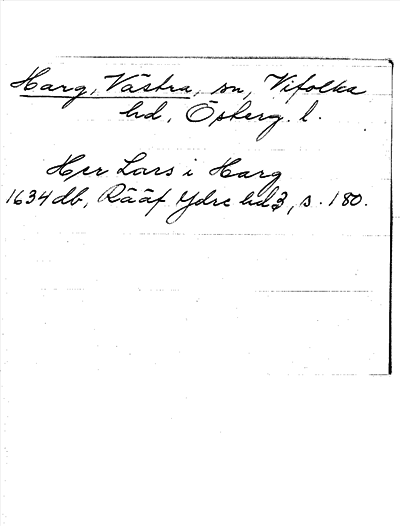 Harg, Västra, sn, Vifolka
hd, Österg. l.
Her Lars i Harg
1634 db, Rääf Ydre hd 3, s. 180.